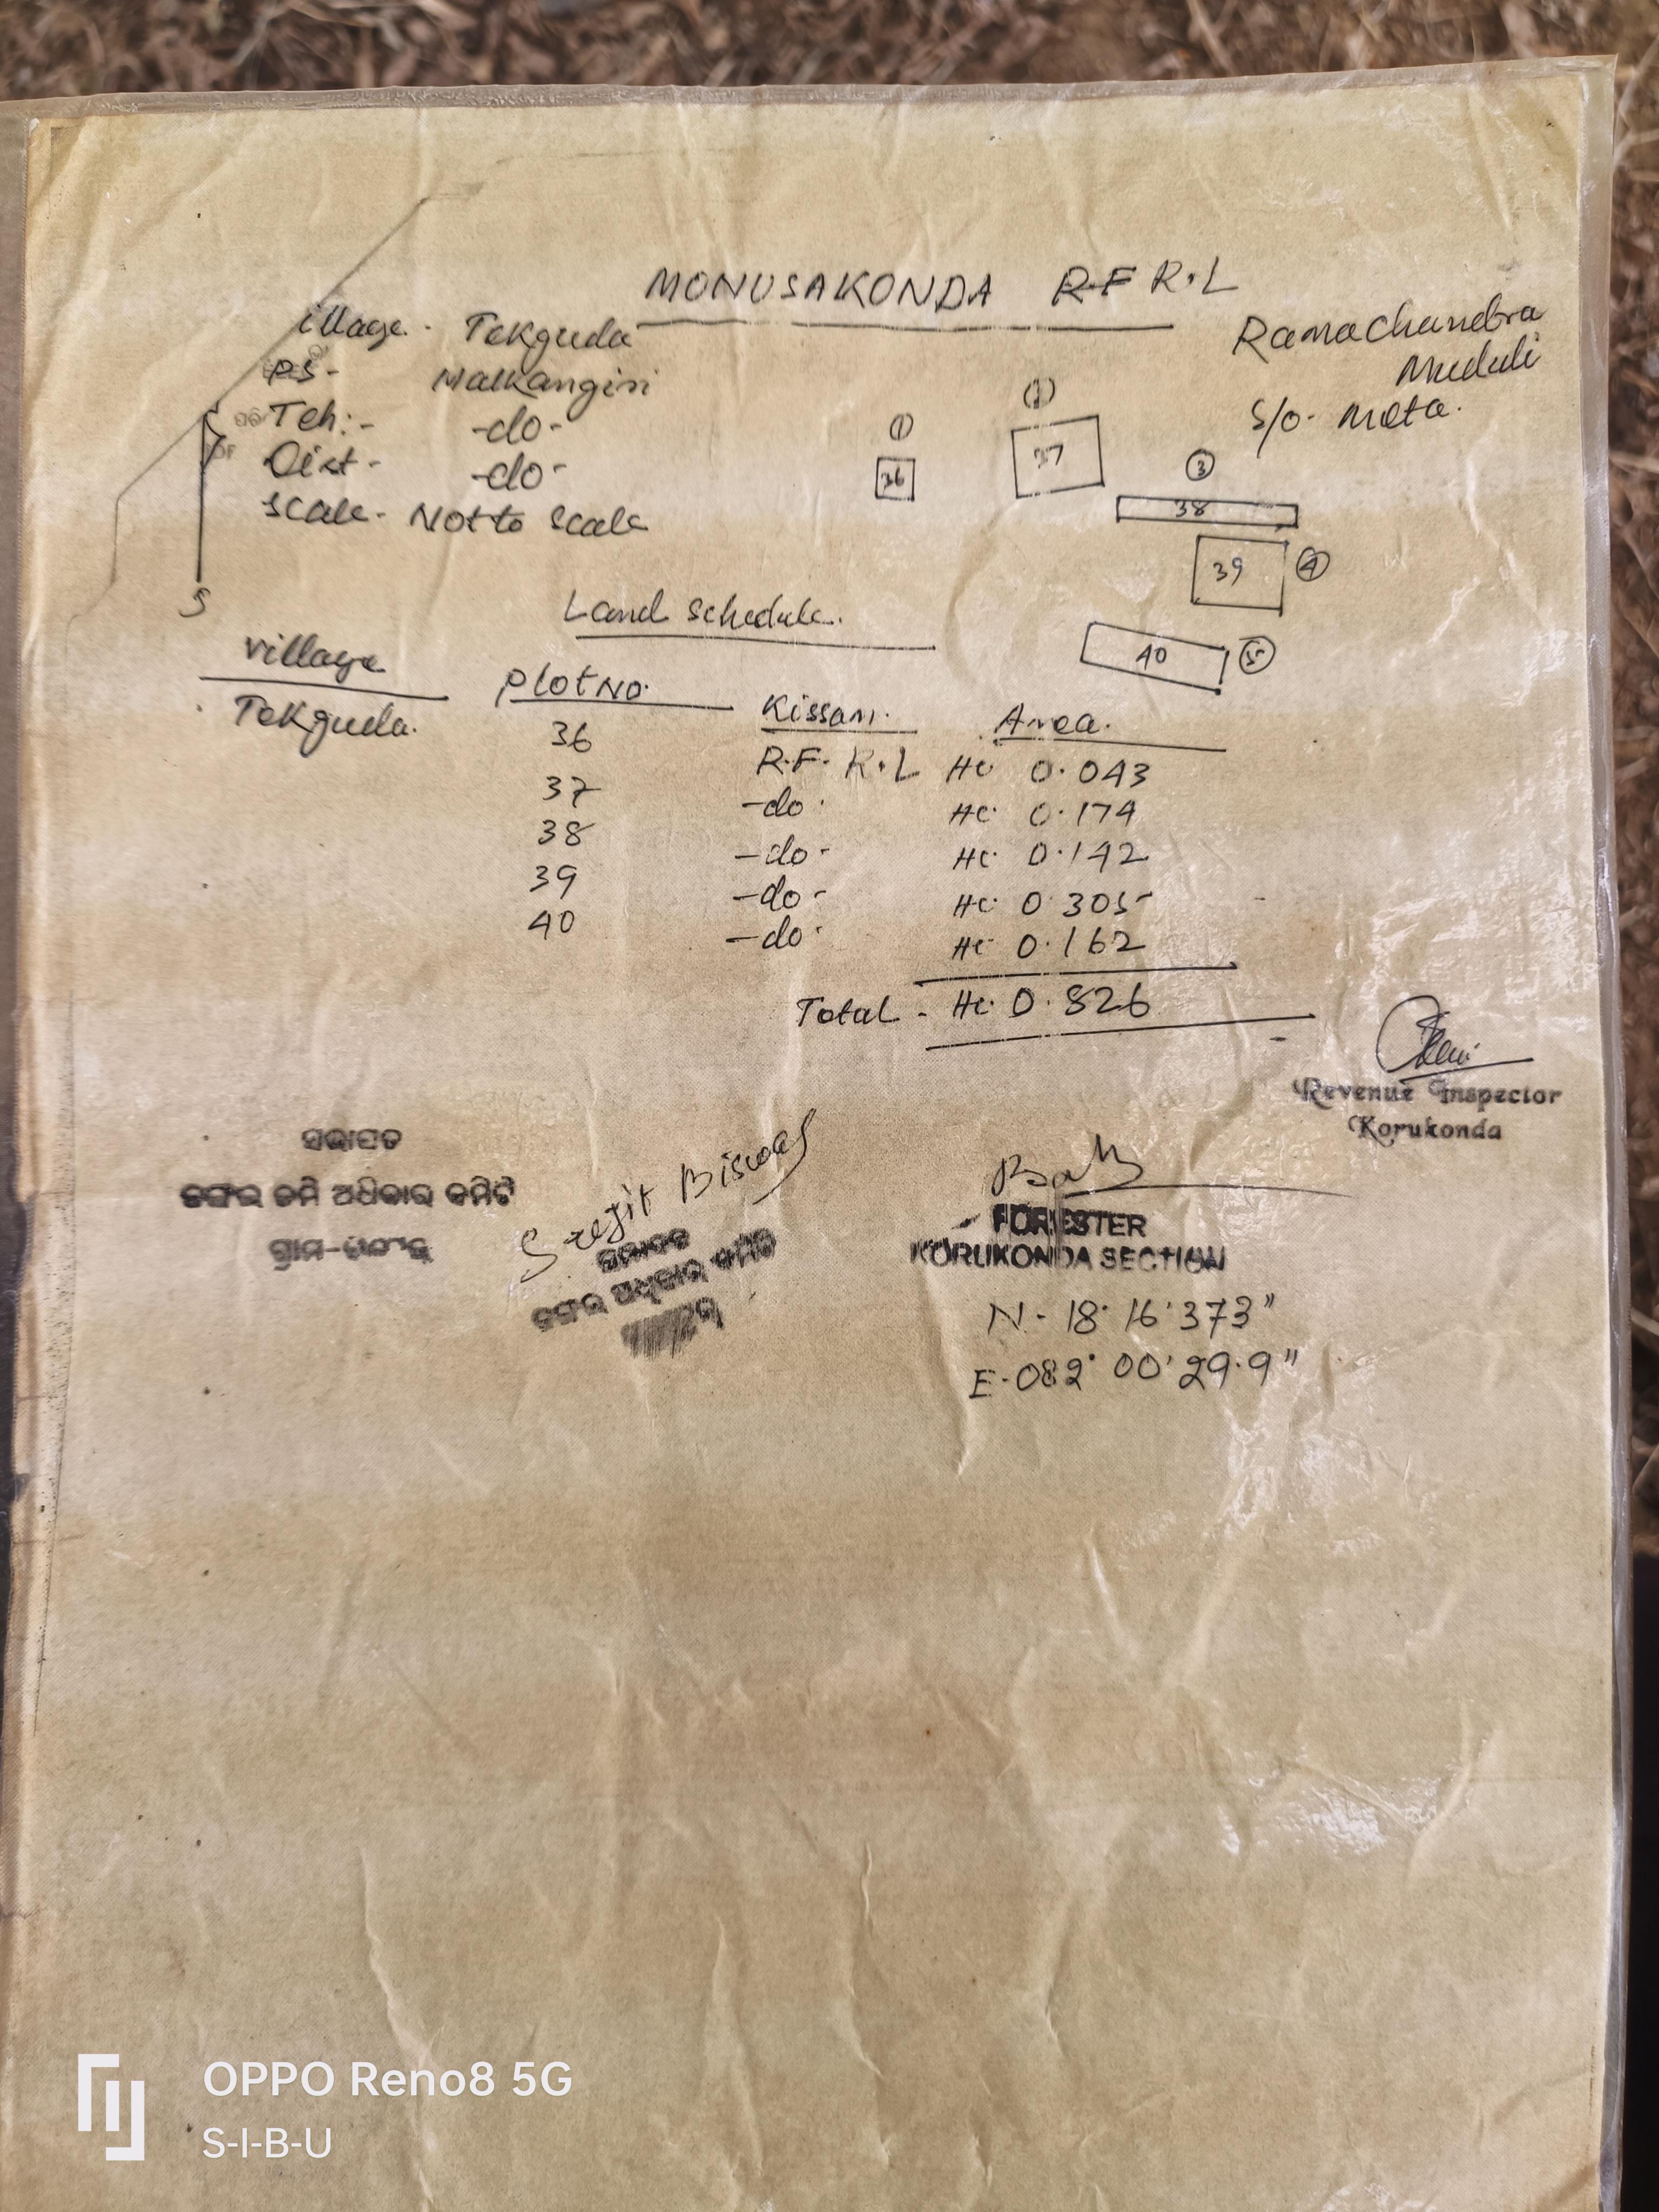 MONUSAKONDA R.F R.L
illage - Tekguda
PS - Malkangiri
Teh:- -do-
Dist - -do-
Scale - Not to Scale
Ramachandra
Muduli
S/o - Meta.
① 36
② 37
③ 38
39 ④
40 ⑤
S
Land Schedule.
Village Plot No. Kissam. Area.
Tekguda. 36 R.F. R.L Hc 0.043
37 -do- Hc 0.174
38 -do- Hc 0.142
39 -do- Hc 0.305
40 -do- Hc 0.162
Total - Hc 0.826
Revenue Inspector
Korukonda
ସଭାପତି
ଜଙ୍ଗଲ ଜମି ଅଧିକାର କମିଟି
ଗ୍ରାମ-
Srejit Biswas
ଜଙ୍ଗଲ ଅଧିକାର କମିଟି
FORESTER
KORUKONDA SECTION
N - 18° 16' 373"
E - 082° 00' 29.9"
OPPO Reno8 5G
S-I-B-U